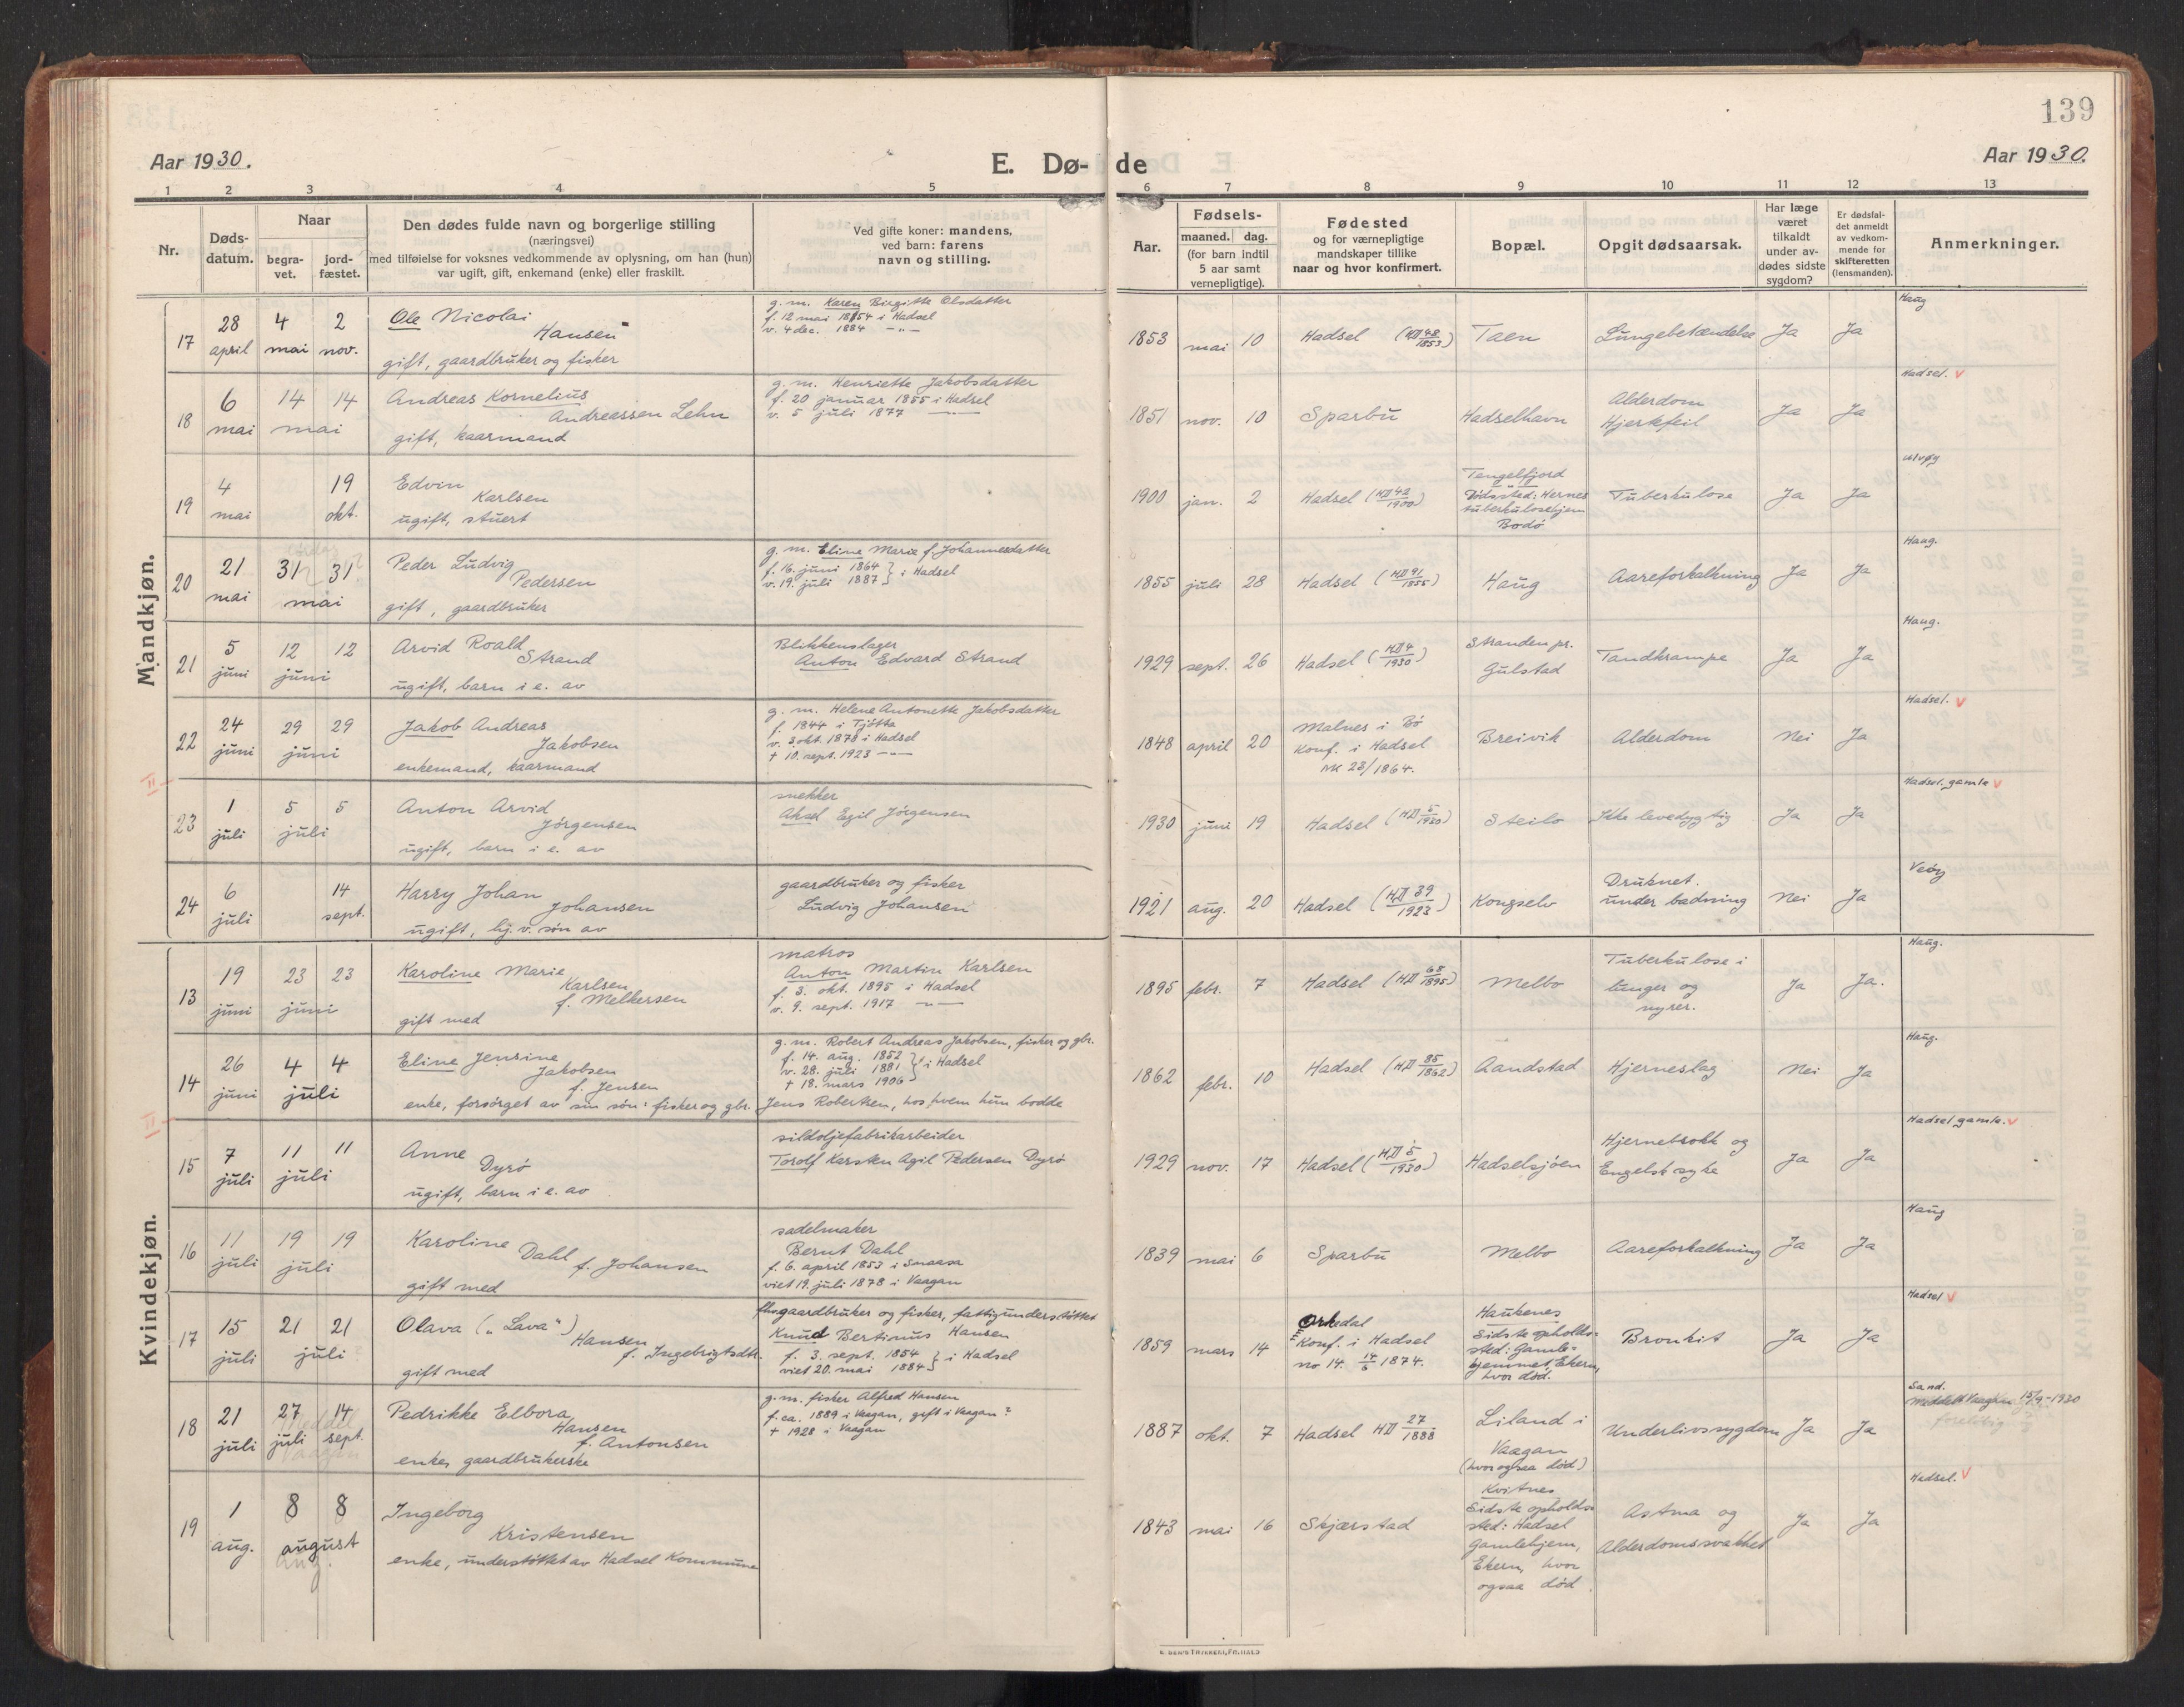 139
Aar 1930.
E. Dø- de
Aar 1930.
1 2 3 4 5 6 7 8 9 10 11 12 13
Nr.
Døds-
datum.
Naar
begra-
vet.
jord-
fæstet.
Den dødes fulde navn og borgerlige stilling
(næringsvei)
med tilføielse for voksnes vedkommende av oplysning, om han (hun)
var ugift, gift, enkemand (enke) eller fraskilt.
Ved gifte koner: mandens,
ved barn: farens
navn og stilling.
Aar.
Fødsels-
maaned. dag.
(for barn indtil
5 aar samt
vernepligtige).
Fødested
og for værnepligtige
mandskaper tillike
naar og hvor konfirmert.
Bopæl.
Opgit dødsaarsak.
Har læge
været
tilkaldt
under av-
dødes sidste
sygdom?
Er dødsfal-
det anmeldt
av vedkom-
mende for
skifteretten
(lensmanden).
Anmerkninger.
Mandkjøn.
17
28
april
4
mai
2
nov.
Ole Nicolai
Hansen
gift, gaardbruker og fisker
g. m. Karen Birgitte Olsdatter
f. 12 mai 1854 i Hadsel
v. 4 dec. 1884 -"-
1853 mai 10 Hadsel (MD 48/1853) Taen Lungebetændelse Ja Ja
Haug
18
6
mai
14 14
mai
Andreas Kornelius
Andreassen Lehn
gift, kaarmand
g. m. Henriette Jakobsdatter
f. 20 januar 1855 i Hadsel
v. 5 juli 1877 -"-
1851 nov. 10 Sparbu Hadselhavn
Alderdom
Hjerkfeil
Ja Ja
Hadsel. v
19
4
mai
19
okt.
Edvin
Karlsen
ugift, stuert
1900 jan. 2 Hadsel (MD 42/1900)
Tengelfjord
Dødssted: Hernes
tuberkulosehjem
Bodø
Tuberkulose Ja Ja
20
21
mai
31 31
mai
Peder Ludvig
Pedersen
gift, gaardbruker
g. m. Eline Marie f. Johannesdatter
f. 16. juni 1864
v. 19. juli 1887 } i Hadsel
1855 juli 28 Hadsel (MD 91/1855) Haug Aareforkalkning Ja Ja
Haug.
21
5
juni
12 12
juni
Arvid Roald
Strand
ugift, barn i e. av
Blikkenslager
Anton Edvard Strand
1929 sept. 26 Hadsel (MD 4/1930)
Stranden pr.
Gulstad
Tandkrampe Ja Ja
Haug.
22
24
juni
29 29
juni
Jakob Andreas
Jakobsen
enkemand, kaarmand
g. m. Helene Antonette Jakobsdatter
f. 1844 i Tjøtta
v. 3. okt. 1878 i Hadsel
+ 10. sept. 1923 -"-
1848 april 20
Malnes i Bø
Konf. i Hadsel
No 28/1864.
Breivik Alderdom Nei Ja
Hadsel. v
23
1
juli
5 5
juli
Anton Arvid
Jørgensen
ugift, barn i e. av
snekker
Aksel Egil Jørgensen
1930 juni 19 Hadsel (MD 5/1930) Steilo Ikke levedygtig Ja Ja
Hadsel. gamle v
24
6
juli
14
sept.
Harry Johan
Johansen
ugift, hj. v. søn av
gaardbruker og fisker
Ludvig Johansen
1921 aug. 20 Hadsel (MD 39/1923) Kongselv
Druknet.
under badning
Nei Ja
Kvindekjøn.
13
19
juni
23 23
juni
Karoline Marie
Karlsen
f. Melkersen
gift med
matros
Anton Martin Karlsen
f. 3. okt. 1895 i Hadsel
v. 9. sept. 1917 -"-
1895 febr. 7 Hadsel (MD 68/1895) Melbo
Tuberkulose i
lunger og
nyrer.
Ja Ja.
Haug.
14
26
juni
4 4
juli
Eline Jensine
Jakobsen
f. Jensen
enke, forsørget av sin søn: fisker og gbr. Jens Robertsen, hos hvem hun bodde
g. m. Robert Andreas Jakobsen, fisker og gbr.
f. 14. aug. 1852
v. 28. juli 1881 } i Hadsel
+ 18. mars 1906
1862 febr. 10 Hadsel (MD 85/1862) Aandstad Hjerneslag Nei Ja
Haug.
15
7
juli
11 11
juli
Anne
Dyrø
ugift, barn i e. av
sildoljefabrikarbeider
Torolf Karsten Agil Pedersen Dyrø
1929 nov. 17 Hadsel (MD 5/1930) Hadselsjøen
Hjernebrokk og
Engelsk syke
Ja Ja
Hadsel gamle. v
16
11
juli
19 19
juli
Karoline
Dahl
f. Johansen
gift med
sadelmaker
Bernt Dahl
f. 6. april 1853 i Snaasa
viet 19. juli 1878 i Vaagan
1839 mai 6 Sparbu Melbo Aareforkalkning Ja Ja
Haug
17
15
juli
21 21
juli
Olava ("Lava")
Hansen
f. Ingebrigtsdtr.
gift med
gaardbruker og fisker, fattigunderstøttet
Knud Bertinus Hansen
f. 3. sept. 1854
viet 20. mai 1884 } i Hadsel
1859 mars 14
Orkedal
Konf. i Hadsel
no 14. 14/6 1874.
Haukenes
Sidste opholds-
sted: Gamle-
hjemmet, Ekern,
hvor død.
Bronkit Ja Ja
Hadsel v
18
21
juli
27
juli
14
sept.
Pedrikke Elbora
Hansen
f. Antonsen
enke, gaardbrukerske
g. m. fisker Alfred Hansen
f. ca. 1889 i Vaagan, gift i Vaagan?
+ 1928 i Vaagan
1887 okt. 7 Hadsel MD 27/1888
Liland i
Vaagan
(hvor ogsaa død)
Underlivssygdom Ja Ja
Sand.
Meddelt Vaagan 15/9-1930
19
1
aug.
8 8
august
Ingeborg
Kristensen
enke, understøttet av Hadsel Kommune
1843 mai 16 Skjærstad
Kvitnes
Sidste opholds-
sted: Hadsel
Gamlehjem,
Ekern, hvor
ogsaa død.
Astma og
Alderdomssvakhet
Ja Ja
Hadsel. v